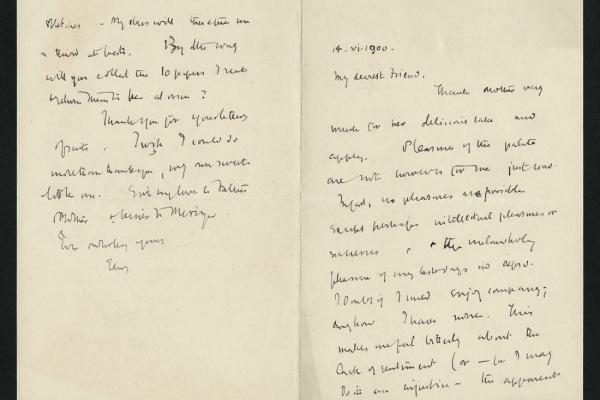 My class will therefore be
a third at best. By the way
will you collect the 10 papers I sent
& return them to me at once?
Thank you for your letters
I wish I could do
more than thank you, my own sweet
little one. Give my love to
Mother & kisses to
Ever & wholly yours
Edwy.
14.vi.1900.
My dearest Friend.
Thank mother very
much for her delicious cake and
apples. Pleasures of the palate
are not however for me just now.
In fact, no pleasures are possible
except perhaps intellectual pleasures or
successes, & the melancholy
pleasure of my last days in
I doubt if I could enjoy company;
anyhow I have none. This
makes me feel bitterly about the
lack of sentiment (or — for I may
do it an injustice — the apparent